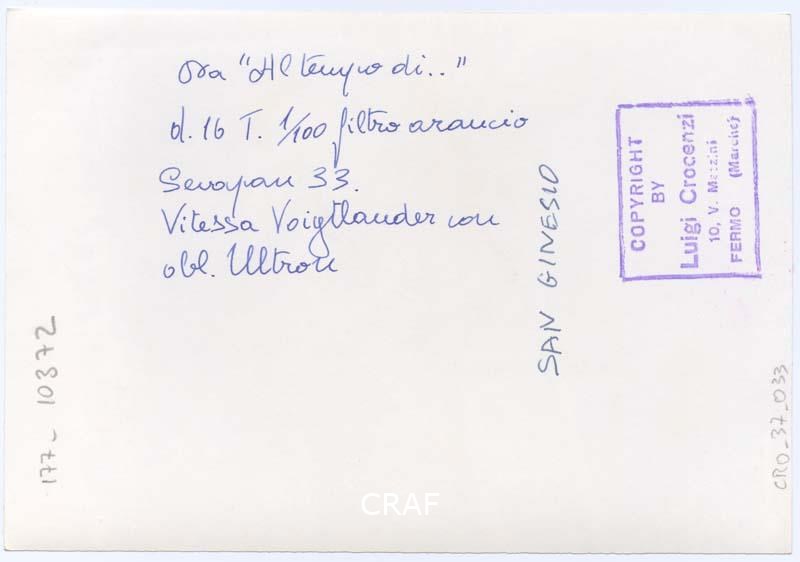 Ora "Al tempo di.."
d. 16 T. 1/100 filtro arancio
Sevapan 33.
Vitessa Voigtlander con
obl. Ultron
SAN GINESIO
COPYRIGHT
BY
Luigi Crocenzi
10, V. Mazzini
FERMO (Marche)
177- 10372
CRO_37_033
CRAF